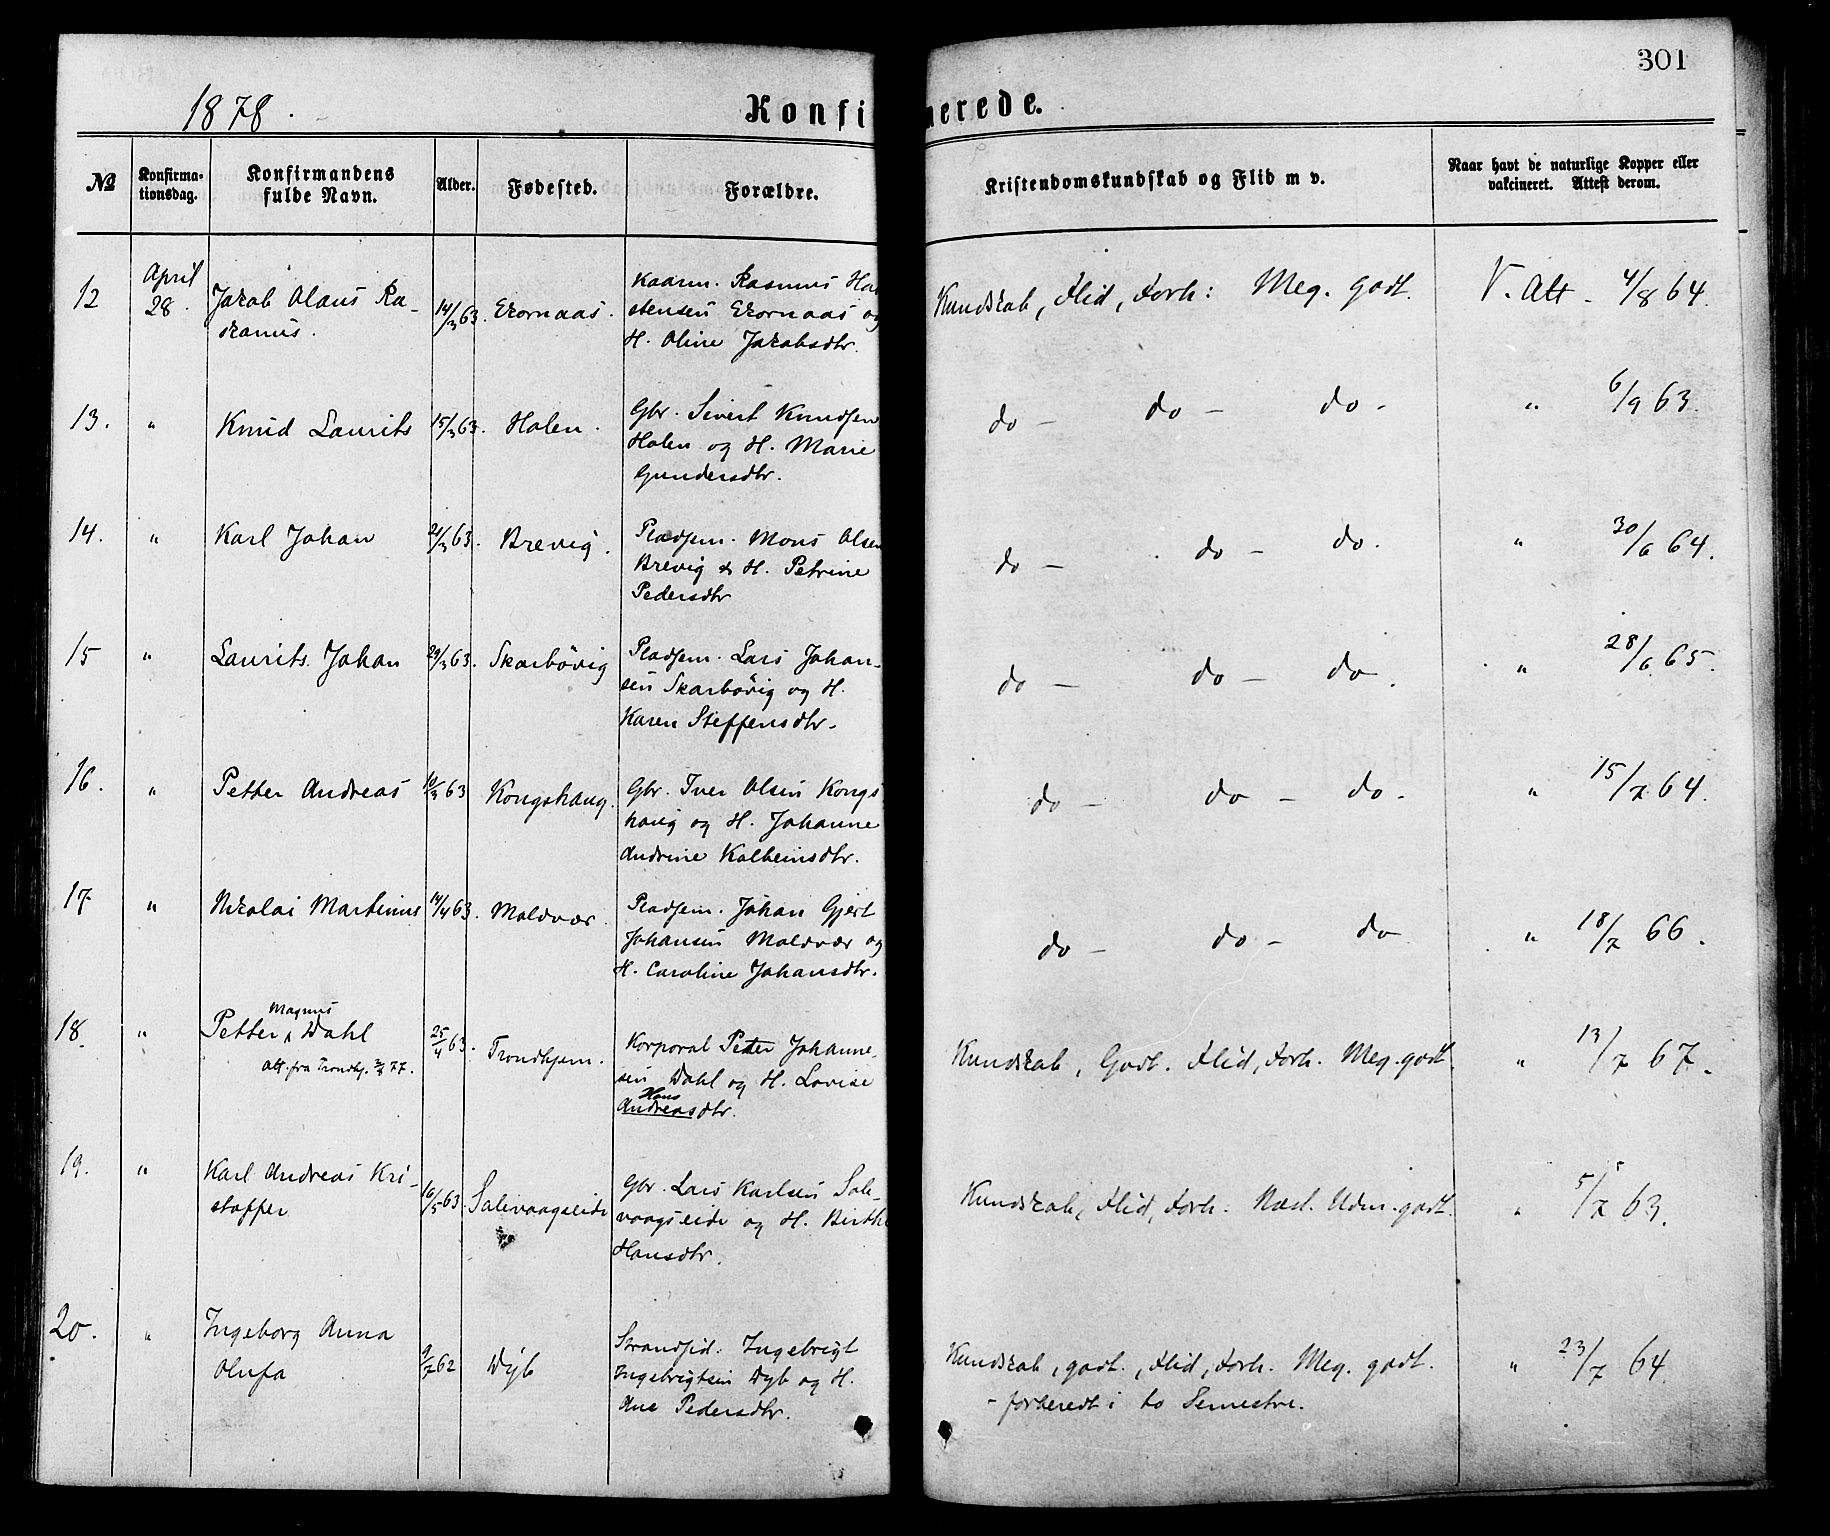 301
1878.
Konfi
nerede.
№
Konfirma-
tionsdag.
Konfirmandens
fulde Navn.
Alder.
Fødested.
Forældre.
Kristendomskundskab og Flid m v.
Naar havt de naturlige Kopper eller
vakcineret. Attest derom.
12
April
28.
Jakob Olaus Ra-
skanus.
14/3 63.
Ekornaas.
Kaarm. Rasmus
stensen Ekornaas og
H. Oline Jakobsdtr.
Kundskab, Flid, Forh: Meg. godt.
V. Att. 4/8 64.
13.
"
Knud Laurits
15/3 63.
Holen.
Gbr. Sivert Knudsen
Holen og H. Marie
Gundersdtr.
do — do — do.
" 6/9 63.
14.
"
Karl Johan
21/3 63.
Brevig.
Pladsem. Mons Olsen
Brevig & H. Petrine
Pedersdtr
do — do — do.
" 30/6 64.
15
"
Laurits Johan
29/3 63.
Skarbövig
Pladsem. Lars Johan-
sen Skarbövig og H.
Karen Steffensdtr.
do — do — do.
" 28/6 65.
16.
"
Petter Andreas
63
Kongshaug.
Gbr. Iver Olsen Kongs
haug og H. Johanne
Andrine Kolbeinsdtr.
do — do — do.
" 15/7 64.
17
"
Nikolai Martinus
14/4 63.
Moldvær.
Pladsem. Johan Gjert
Johansen Moldvær og
H. Caroline Johansdtr.
do — do — do
" 18/7 66.
18.
"
Magnus
Petter Dahl
att. fra Trondhj. 77.
25/4 63.
Trondhjem.
Korporal Peter Johanne-
sen Dahl og H. Lovise
Hans
Andreasdtr.
Kundskab, Godt. Flid, Forh. Meg. godt.
" 13/7 67.
19.
"
Karl Andreas Kri-
stoffer
16/5 63.
Salevaagseide
Gbr. Lars Karlsen Sale-
vaagseide og H. Birthe
Hansdtr.
Kundskab, Flid, Forh. Næst. Udm. godt.
" 5/7 63.
20.
"
Ingeborg Anna
Olufa
9/7 62
Dyb
Strandsid. Ingebrigt
Ingebrigtsen Dyb og H.
Ane Pedersdtr.
Kundskab, godt., Flid, Forh. Meg. godt.
- forberedt i to Semestre.
" 23/7 64.